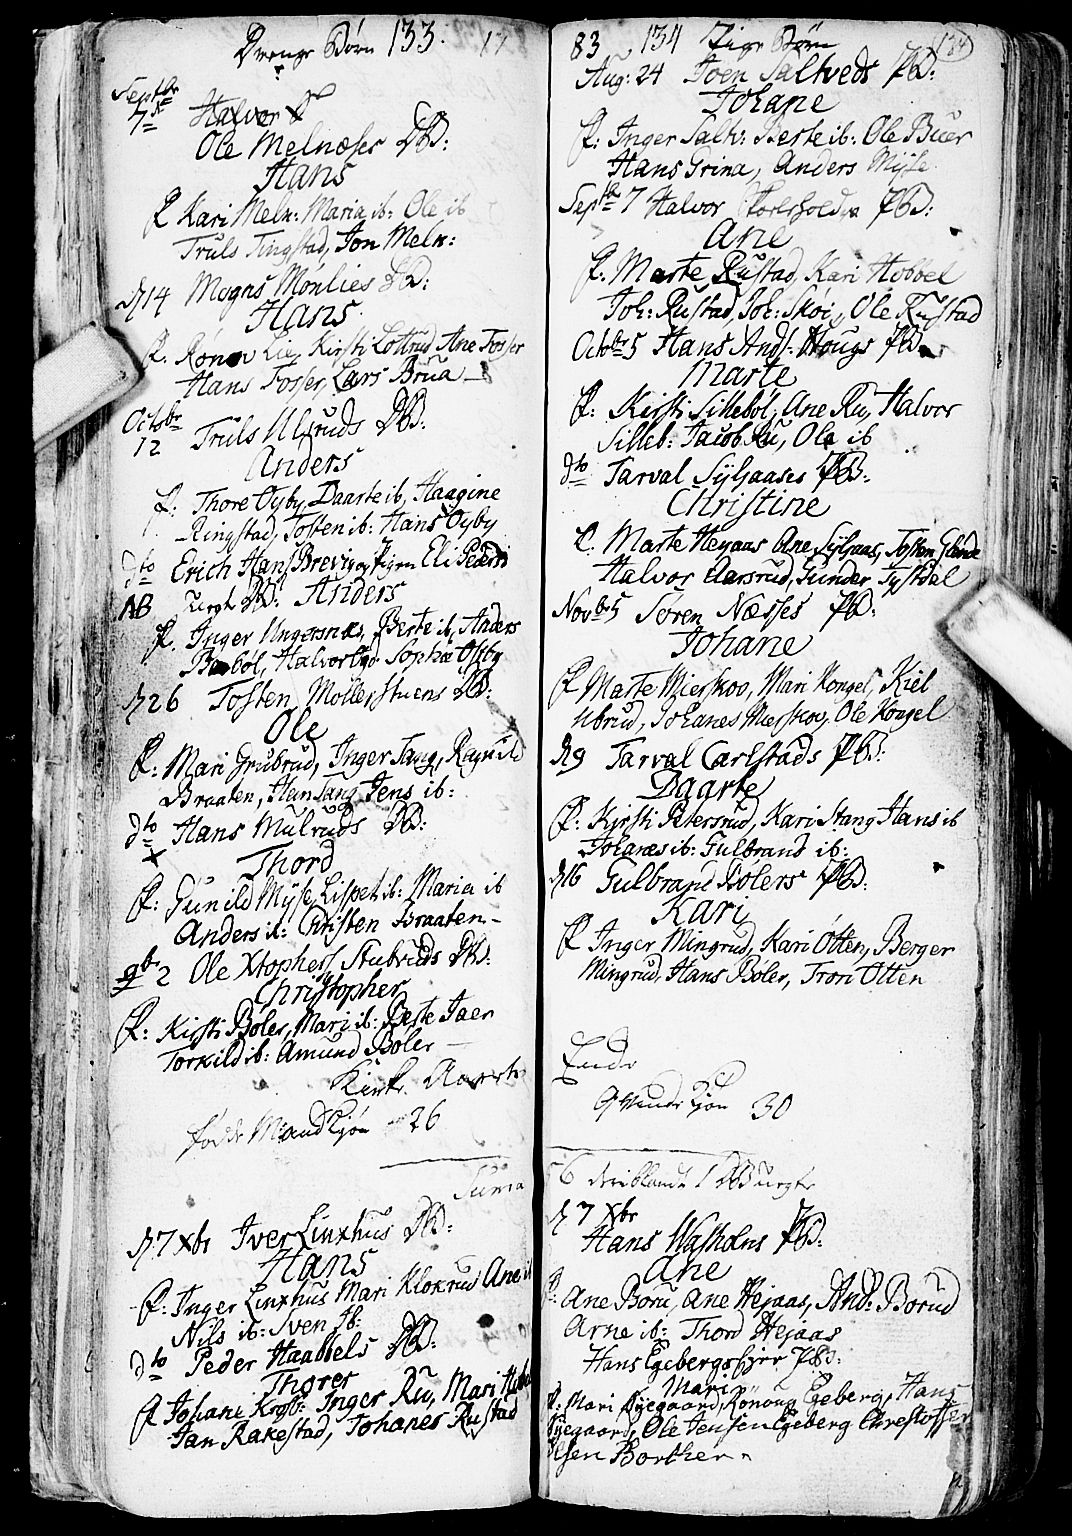 Drenge Børn 133. 17
Septbr
7de Halvor
Ole Melnæses DB:
Hans
F: Kari Meln: Maria ib: Ole ib
Truls Tingstad, Jon Meln:
D 14 Mogns Mønlies DB:
Hans
F: Rønov Lie, Kirsti Lottrud, Ane Fosser
Hans Fosser, Lars Brua
Octobr
12 Truls Ulsruds DB:
Anders
F: Thore Oyby, Daarte ib, Haagine
Ringstad, Tosten ib: Hans Oyby
dto Erich Hans Brevig og Pigen Eli Pedersd
NB uegt DB: Anders
F: Inger Ungersnes, Berte ib, Anders
Bøbøl, Halvor Sophæ Ousby
D 26 Tosten Møllerstuens DB:
Ole
F: Mari Grubrud, Inger Tang, Ragnild
Braaten, Hans Tang Jens ib:
dto Hans Mulruds DB:
x Thord
F: Gunild Myse, Lispet ib: Maria ib
Anders ib: Christen Braaten
9br 2 Ole Xtophers: Stubruds DB:
Christopher
F: Kirsti Bøler, Mari ib: Berte Jaer
Torkild ib: Amund Bøler
Kirke Aarets
fødde Mandkjøn 26
Suma
D 7 Xbr Iver Linxhus DB:
Hans
F: Inger Linxhus Mari Klokrud Ane ib
Nils ib: Sven ib:
dto Peder Haabbels DB:
Thorer
F: Johane Krogb: Inger Ru, Mari
Jan Rakestad, Johanes Rustad
83 134 Pige Børn (134)
Aug: 24 Joen Saltveds PB:
Johane
F: Inger Saltv: Berte ib: Ole Buer
Hans Grina, Anders Myse
Septbr 7 Halvor PB:
Ane
F: Marte Rustad, Kari Hobbel
Joh: Rustad, Joh: Skoi, Ole Rustad
Octobr 5 Hans Ands: Hougs PB:
Marte
F: Kirsti Sillebøl, Ane Ru, Halvor
Silleb: Jacob Ru, Ole ib
dto Tarval Syljaases PB:
Christine
F: Marte Hejaas Ane Syljaas, Tosten
Halvor Aarsrud, Gunder Tystdal
Novbr 5 Søren Næsses PB:
Johane
F: Marte Mierskov, Mari Kongel, Kiel
Ubrud, Johanes Mierskov, Ole Kongel
D 9 Tarval Carlstads PB:
Daarte
F: Kirsti Petersrud, Kari Stang Hans ib
Johanes ib: Gulbrand ib:
D 16 Gulbrand Bølers PB:
Kari
F: Inger Mingrud, Kari Otten, Berger
Mingrud, Hans Bøler, Tron Otten
Ende
Qvinde Kjøn 30
56 deriblandt 1 DB uegte
D 7 Xbr
Hans Washolms PB:
Ane
F: Ane Boru, Ane Hejaas, And: Borud
Arne ib: Thord Hejaas
Hans Egebergs PB:
Mari
F: Mari Ryegaard, Rønoug Egeberg, Hans
Ryegaard, Ole Jensen Egeberg Christoffer
Olsen Borther